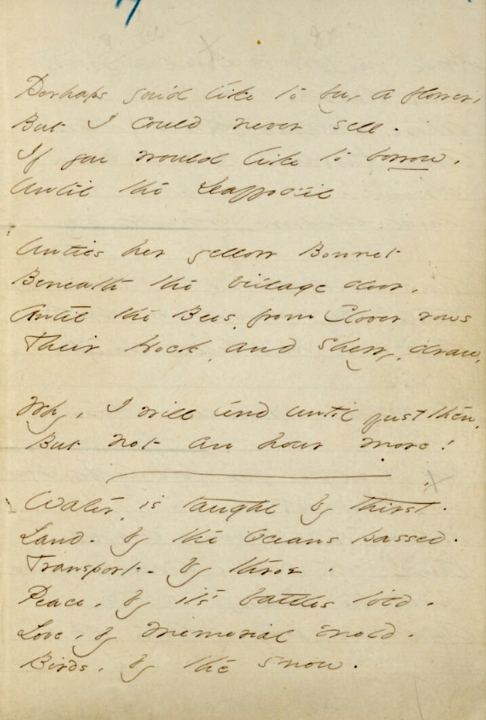 Perhaps you'd like to buy a flower,
But I could never sell -
If you would like to borrow,
Until the Daffodil
Unties her yellow Bonnet
Beneath the village door,
Until the Bees, from Clover rows
Their Hock, and Sherry, draw,
Why, I will lend until just then,
But not an hour more!
Water, is taught by thirst.
Land - by the Oceans passed.
Transport - by throe -
Peace, by it's battles told -
Love, by memorial mold -
Birds, by the snow.